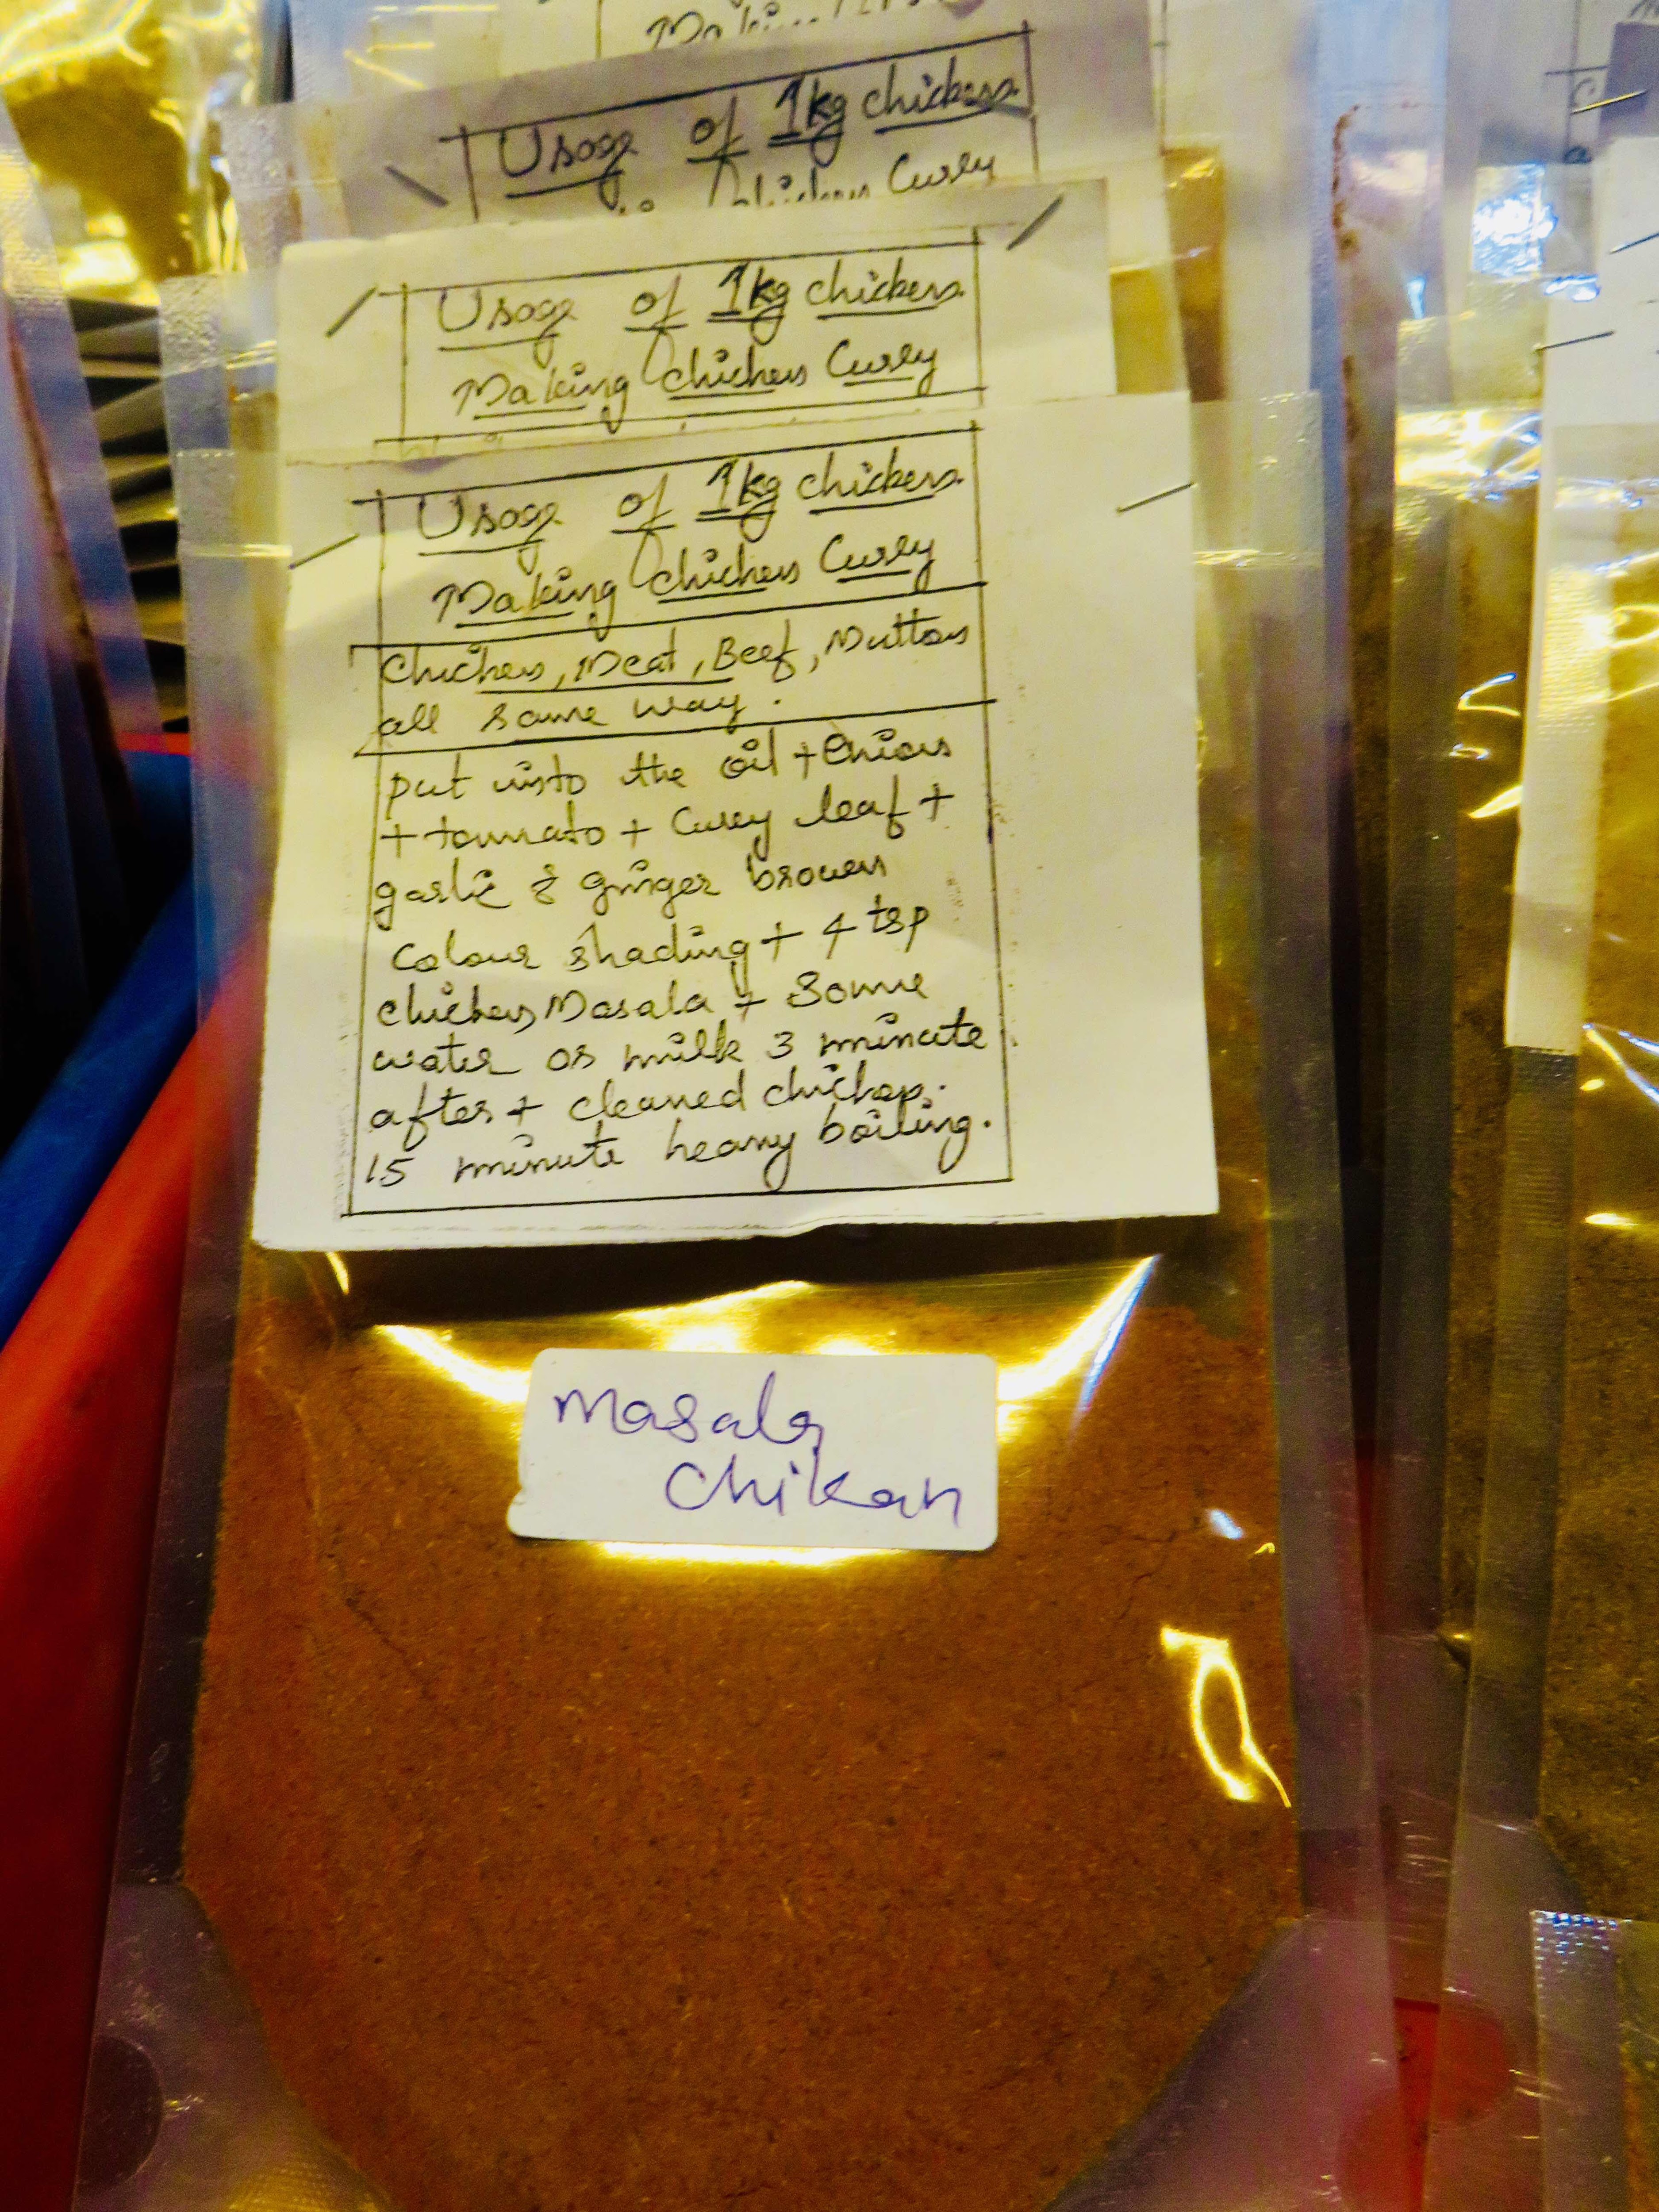 Usage of 1kg chicken
Usage of 1kg chicken
Making chicken Curry
Usage of 1kg chicken
Making chicken Curry
Chicken, Meat, Beef, Mutton
all same way.
put into the oil + Onion
+ tommato + Curry leaf +
garlic & ginger brown
colour shading + 4 tsp
chicken Masala + Some
water or milk 3 minute
after + cleaned
15 minute heavy boiling.
Masala
Chikan